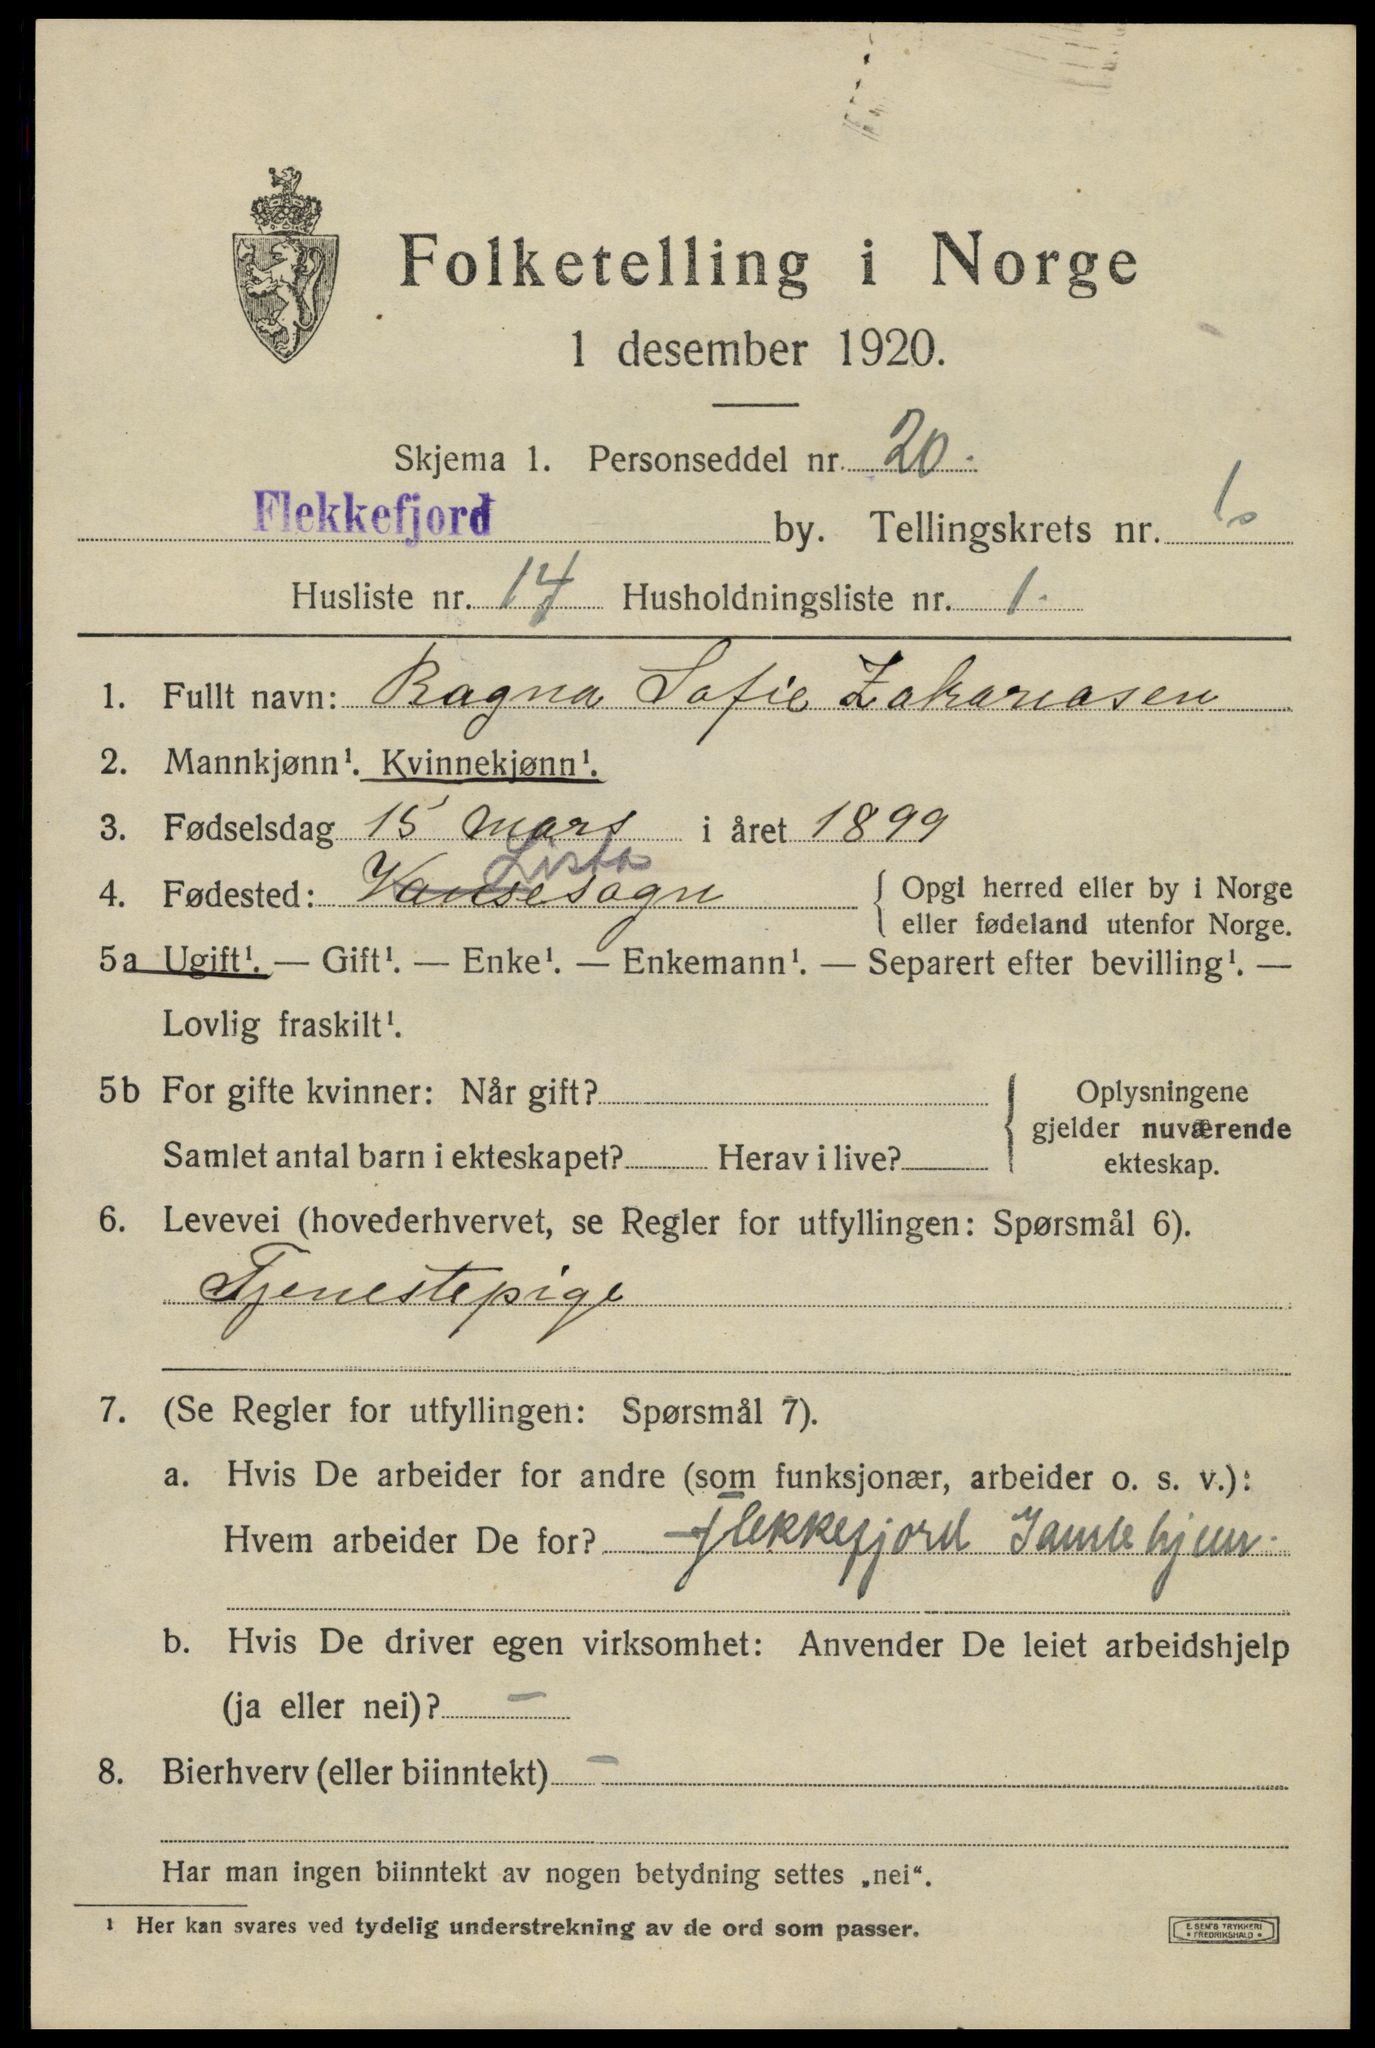 Folketelling i Norge
1 desember 1920.
Skjema 1. Personseddel nr. 20.
Flekkefjord by. Tellingskrets nr. 1.
Husliste nr. 14 Husholdningsliste nr. 1.
1. Fullt navn: Ragna Sofie Zakariasen
2. Mannkjønn¹. Kvinnekjønn¹.
3. Fødselsdag 15 mars i året 1899
Lista
4. Fødested: Vansesogn { Opgi herred eller by i Norge
eller fødeland utenfor Norge.
5a Ugift¹. — Gift¹. — Enke¹. — Enkemann¹. — Separert efter bevilling¹. —
Lovlig fraskilt¹.
5b For gifte kvinner: Når gift? { Oplysningene
gjelder nuværende
Samlet antal barn i ekteskapet? Herav i live? ekteskap.
6. Levevei (hovederhvervet, se Regler for utfyllingen: Spørsmål 6).
Tjenestepige
7. (Se Regler for utfyllingen: Spørsmål 7).
a. Hvis De arbeider for andre (som funksjonær, arbeider o. s. v.):
Hvem arbeider De for? Flekkefjord Gamlehjem.
b. Hvis De driver egen virksomhet: Anvender De leiet arbeidshjelp
(ja eller nei)? —
8. Bierhverv (eller biinntekt) —
Har man ingen biinntekt av nogen betydning settes „nei“.
¹ Her kan svares ved tydelig understrekning av de ord som passer.
E. SEM'S TRYKKERI
• FREDRIKSHALD •